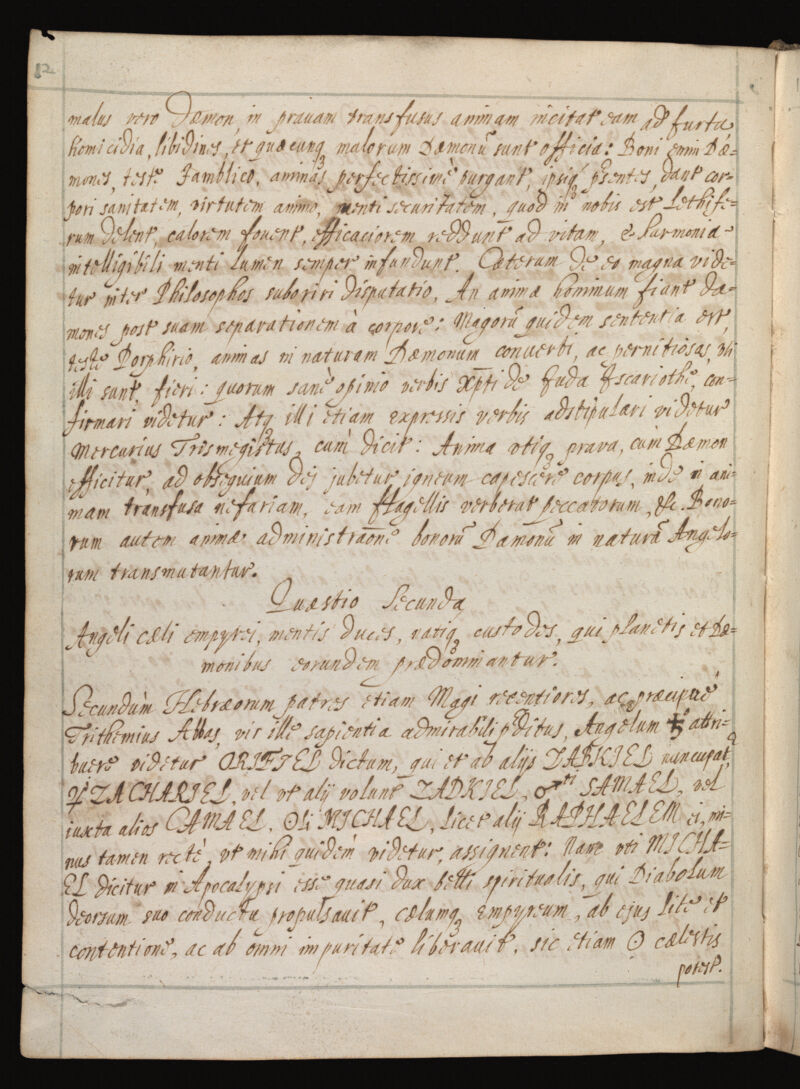 12
malus vero Dæmon, in prauam transfusus animam incitat eam ad furta
homicidia, libidines, et quæcunq malorum Dæmonũ sunt officia: Boni enim Dæ=
mones, teste Jamblico, animas perfectissimè purgant, ipsiq p̃sentes, dant cor=
pori sanitatem, virtutem animo, menti securitatem, quod in nobis est Lethife=
rum delent, calorem fouent, efficaciorem reddunt ad vitam, & harmonia
intelligibili menti lumen semper infundunt. Cæterum de eo magna vide=
tur inter Philosophos suboriri disputatio, An animæ hominum fiant dæ=
mones post suam separationem à corpore: Magorũ quidem sententia est,
teste Porphirio, animas in naturam Dæmonum conuerti, ac pernitiosas, vti
illi sunt, fieri: quorum sanè opinio verbis Xp̃ti de Juda Iscariothe, con=
firmari videtur: Atq illi etiam expressis verbis adstipulari videtur
Mercurius Trismegistus, cum dicit: Anima vtiq prava, cum Dæmon
efficitur, ad obsequium Dej jubetur igneum capescere corpus, inde in ani=
mam transfusa nefariam, eam flagellis verberat peccatorum, &c. Bono=
rum autem animæ administraõne bonorũ Dæmonũ in naturã Angelo=
rum transmutantur.
Quæstio Secunda
Angeli cæli empyrei, mentis duces, ratiq custodes, qui planetis et Dæ=
monibus eorundem prædominantur.
Secundùm Hebræorum patres etiam Magi recentiores, ac præcipuè
Trithemius Abbas, vir ille sapientia admirabili p̃ditus, Angelum ♄ attri=
buere videtur ORIFIEL dictum, qui et ab alijs ZAPKIEL nuncupatr
♃ ZACHARIEL, vel vt alij volunt ZADKIEL, ♂ti SAMAEL, vel
iuxta alios CAMAEL. ☉li MICHAEL, licet alij RAPHAELEM ei, mi=
nus tamen rectè, vt mihi quidem videtur, assignent: Nam vti MICHA=
EL dicitur in Apocalypsi esse quasi dux belli spiritualis, qui Diabolum
deorsum suo conductu propulsauit, cælumq Empyreum, ab ejus lite et
contentione, ac ab omni impuritate liberauit, sic etiam ☉ cælestis
potest.